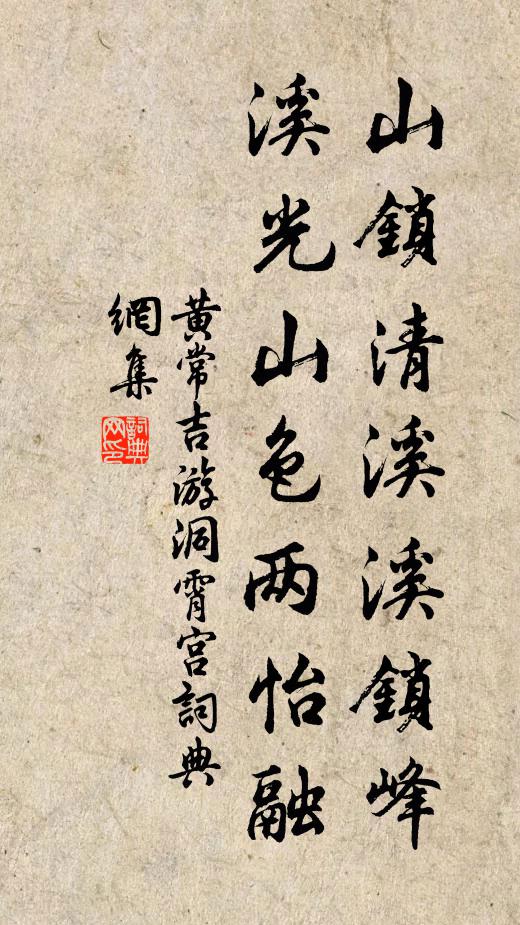 山鎖清溪溪鎖峰
溪光山色两怡融
黄常吉游洞霄宫詞典
網集
詞典
网印